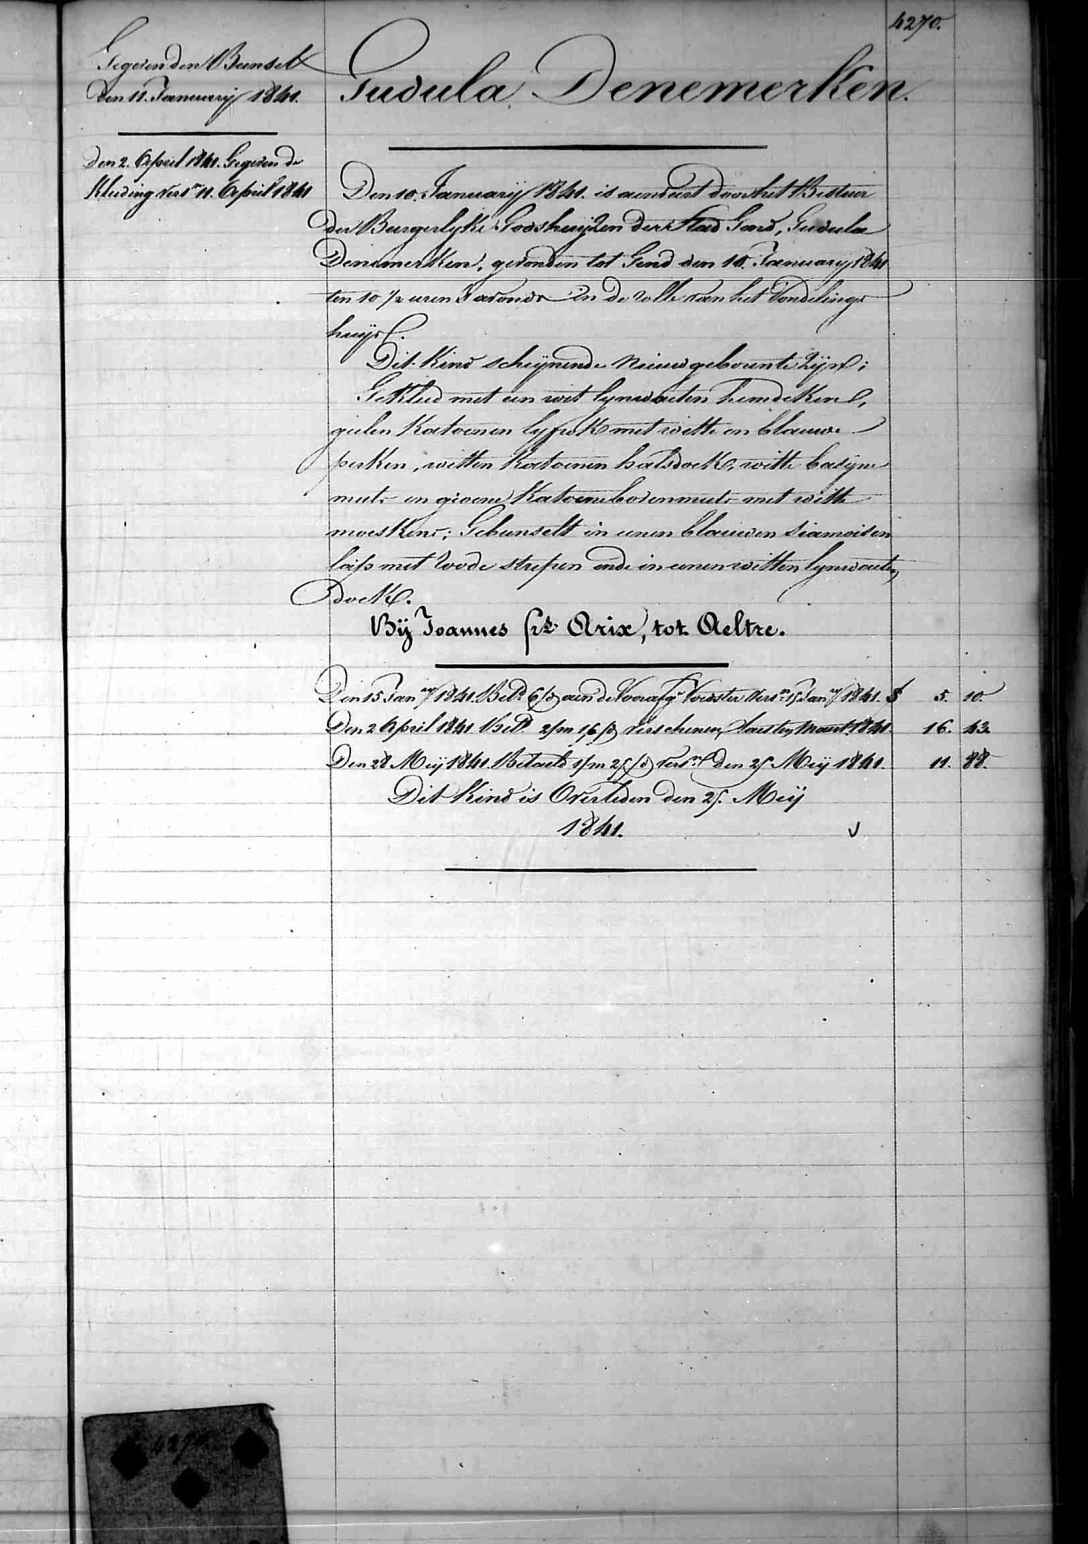 4270.
Gegeven den Bunsel
den 11. January 1841.
den 2. April 1841. Gegeven de
Kleeding vers.n 11. April 1841
Gudula Denemerken.
Den 10. January 1841. is aenveert door het Bestuer
der Burgerlyke Godshuijzen der Stad Gend, Gudula
Denemerken, gevonden tot Gend den 10. January 1841
ten 10 1/2 uren s'avonds in de rolle van het Vondelings
huijs.
Dit Kind schynende nieuwgeboren te zijn;
Gekleed met een wit lynwaeten hemdeken,
geelen Katoenen lyfrok met witte en blauwe
perken, witten Katoenen halsdoek, witte basyne
muts en groene Katoene bovenmuts met witte
moeskens; Gebunselt in eenen blauwen siamoisen
lap met roode strepen ende in eenen witten lynwaeten
doek.
Bij Joannes frs. Arix, tot Aeltre.
Den 15 Jan.ry 1841. Bet.d 6/d aen de Voorafg.e Voedster vers.n 15 Jan.ry 1841. f 5. 10.
Den 2 April 1841 Bet.d 2/m 16/d verschenen laesten Maert 1841. 16. 43.
Den 28 Meij 1841. Betaeld 1/m 25/d vers.n den 25 Meij 1841. 11. 88.
Dit Kind is Overleden den 25. Meij
1841.
427